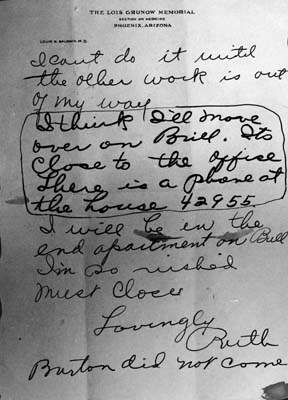 THE LOIS GRUNOW MEMORIAL
SECTION ON MEDICINE
PHOENIX, ARIZONA
LOUIS B. BALDWIN, M.D.
I cant do it until
the other work is out
of my way
I think I'll move
over on Brill. Its
close to the office
There is a phone at
the house 42955.
I will be in the
end apartment on Brill
I'm so rushed
Must close
Lovingly
Ruth
Burton did not come